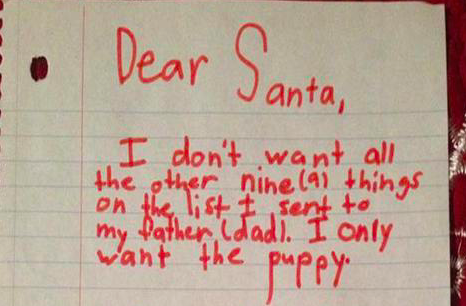 Dear Santa,
I don't want all
the other nine(9) things
on the list I sent to
my father (dad). I only
want the puppy.